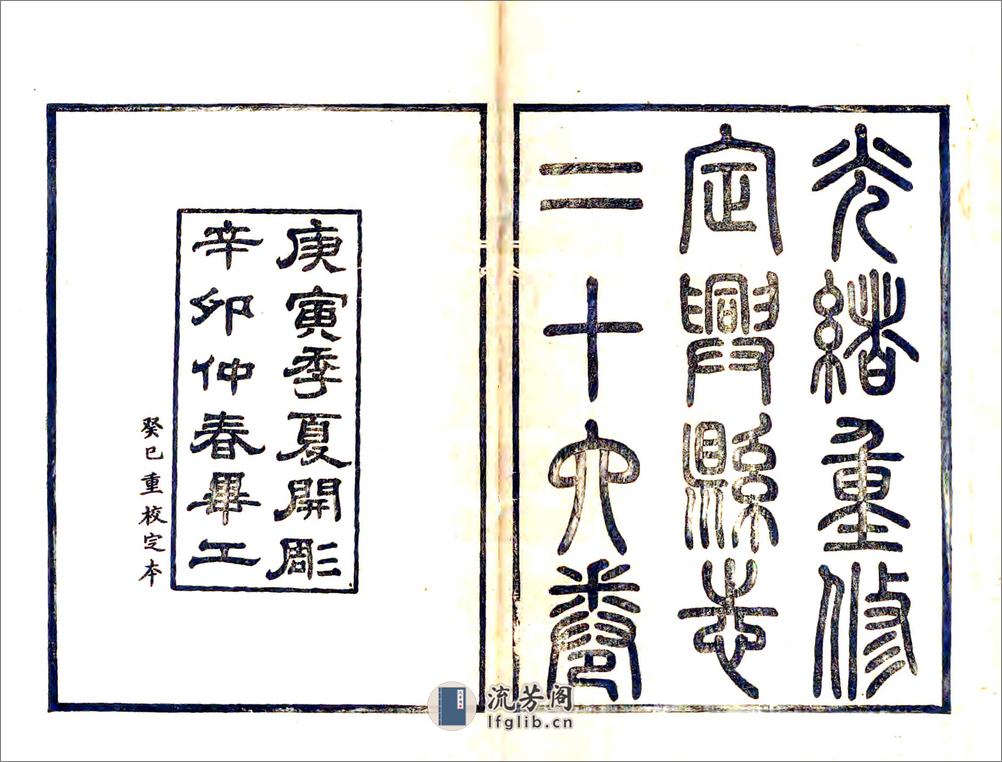 光緒重修
定興縣志
二十六卷
庚寅季夏開彫
辛卯仲春畢工
癸巳重校定本
流芳阁
lfglib.cn